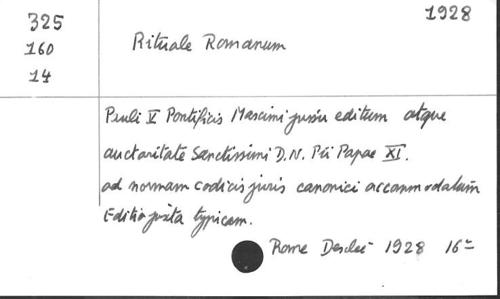 1928
325
160
14
Rituale Romanum
Pauli V Pontificis Maximi jussu editum atque
auctoritate Sanctissimi D.N. Pii Papae XI.
ad normam codicis juris canonici accommodatum
Editio juxta typicam.
Rome Desclée 1928 16º